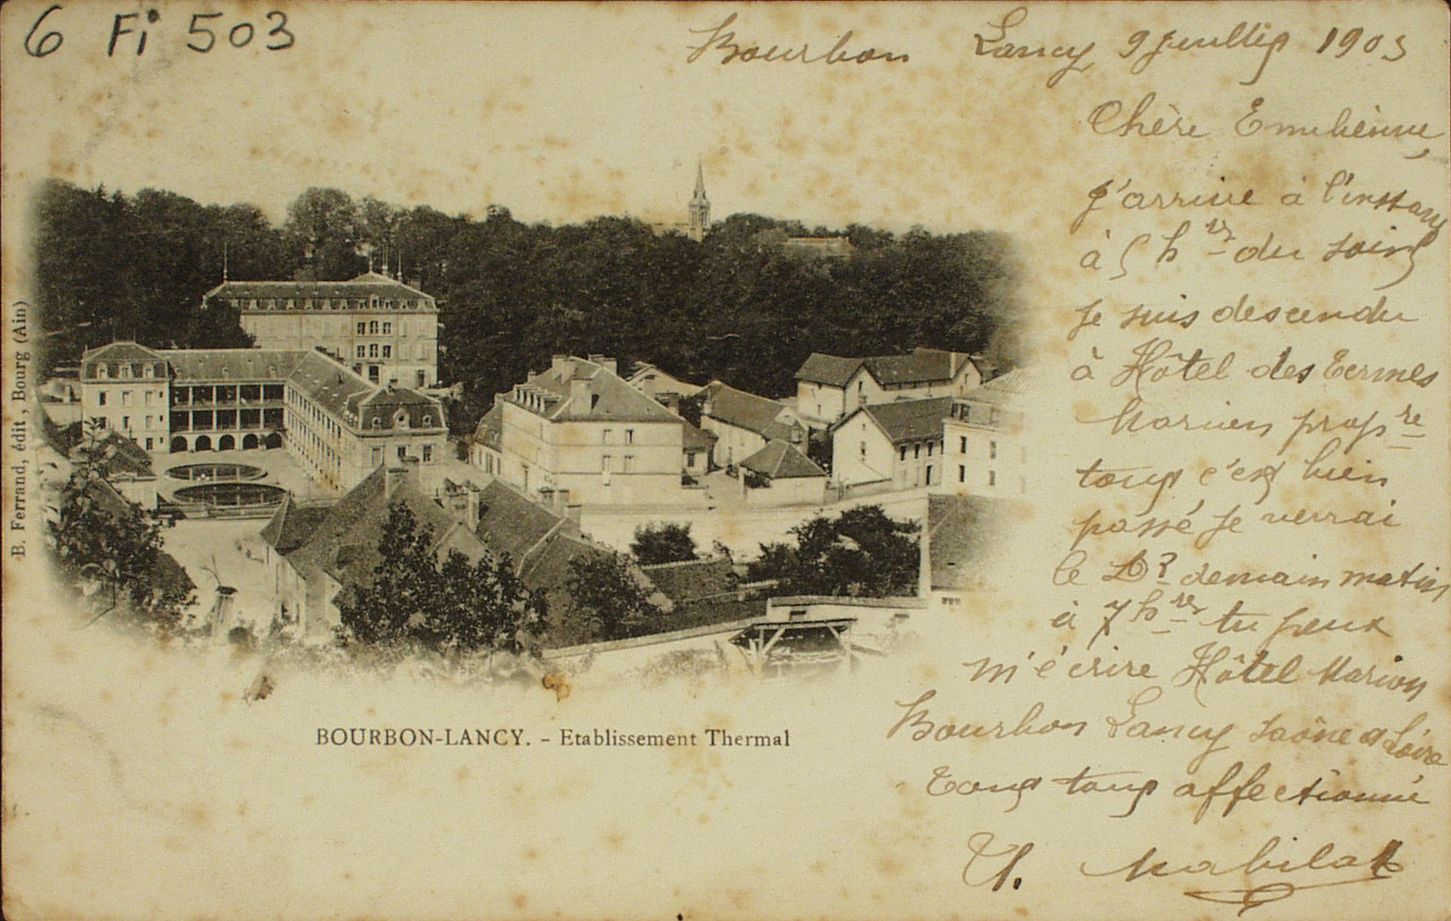 6 Fi 503
Bourbon Lancy 9 Juillet 1903
Chère Emilienne,
J'arrive à l'instant
à 5 hres du soir
Je suis descendu
à Hôtel des Termes
Marion propre
tout c'est bien
passé Je verrai
le Dr demain matin
à 7 hres tu peux
m'écrire Hôtel Marion
Bourbon Lancy Saône et Loire
Ton tout affectionné
Th. Mabilat
BOURBON-LANCY. - Etablissement Thermal
B. Ferrand, édit, Bourg (Ain)